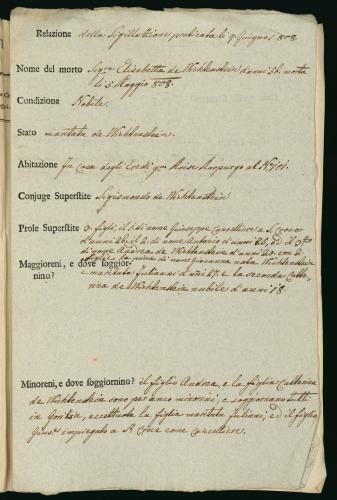 Relazione della Sigillazione praticata li 9 Giugno 1808.
Nome del morto Sigra Elisabetta de Wichtenstein d'anni 56. morta
li 5 Maggio 808.
Condizione Nobile.
Stato maritata de Wichtenstein.
Abitazione In Casa degli Eredi qm Moise Morpurgo al No
Conjuge Superstite Sigismondo de Wichtenstein
Prole Superstite 3 figli, il 1 di nome Giuseppe Cancelliere a S. Croce
d'anni 26, il 2. di nome Antonio d'anni 25, ed il 3zo
di nome Andrea de Wichtenstein d'anni 20. con 2
figlie la prima di nome Giovanna nata Wichtenstein
Maggioreni, e dove soggior-
nino?
e maritata Julianni d'anni 27. e la seconda Catte-
rina de Wichtenstein nubile d'anni 18.
Minoreni, e dove soggiornino? il figlio Andrea, e la figlia Catterina
de Wichtenstein sono per anco minoreni, e soggiornano tutti
in Gorizia, eccettuata la figlia maritata Juliani, ed il figlio
Giuse impiegato a S. Croce come Cancelliere.